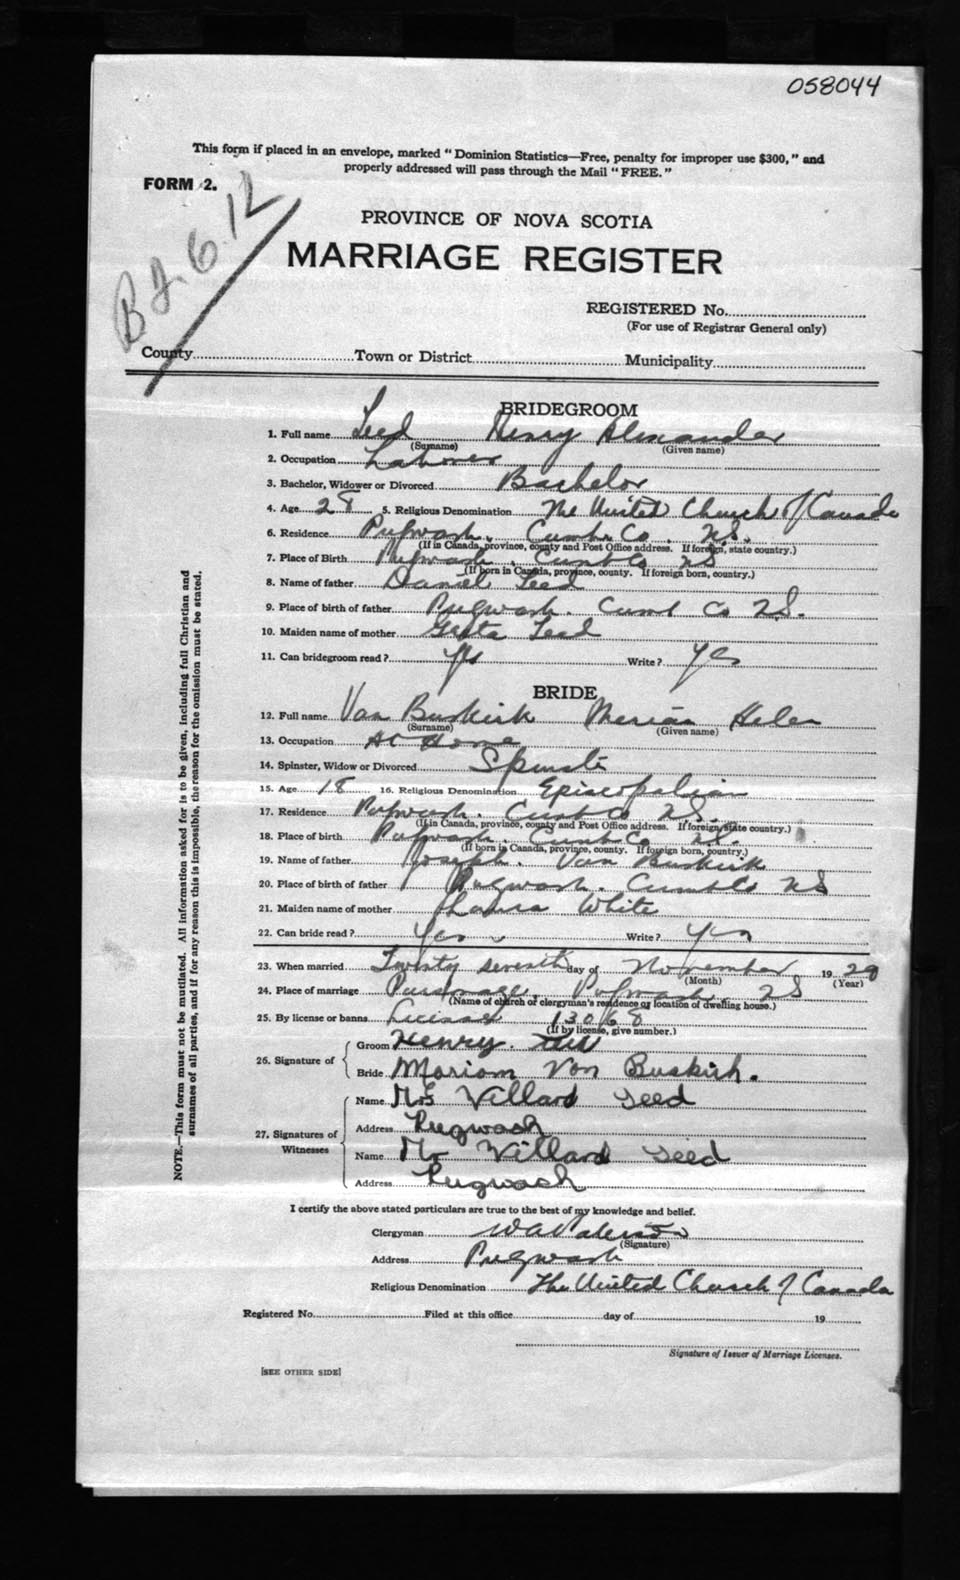 058044
This form if placed in an envelope, marked "Dominion Statistics—Free, penalty for improper use $300," and
properly addressed will pass through the Mail "FREE."
FORM 2.
PROVINCE OF NOVA SCOTIA
MARRIAGE REGISTER
REGISTERED No.
(For use of Registrar General only)
County Town or District Municipality
BRIDEGROOM
1. Full name Seed Henry Alexander
(Surname) (Given name)
2. Occupation Laborer
3. Bachelor, Widower or Divorced Bachelor
4. Age 28 5. Religious Denomination The United Church of Canada
6. Residence Pugwash. Cumb. Co. N.S.
(If in Canada, province, county and Post Office address. If foreign, state country.)
7. Place of Birth Pugwash. Cumb Co NS
(If born in Canada, province, county. If foreign born, country.)
8. Name of father Daniel Seed
9. Place of birth of father Pugwash. Cumb Co N.S.
10. Maiden name of mother Seed
11. Can bridegroom read? Yes Write? Yes
BRIDE
12. Full name Van Buskirk Helen
(Surname) (Given name)
13. Occupation At Home
14. Spinster, Widow or Divorced Spinster
15. Age 18 16. Religious Denomination Episcopalian
17. Residence Pugwash. Cumb Co N.S.
(If in Canada, province, county and Post Office address. If foreign, state country.)
18. Place of birth Pugwash. Cumb Co N.S.
(If born in Canada, province, county. If foreign born, country.)
19. Name of father Joseph. Van Buskirk
20. Place of birth of father Pugwash. Cumb Co NS
21. Maiden name of mother Laura White
22. Can bride read? Yes Write? Yes
23. When married Twenty seventh day of November 1929
(Month) (Year)
24. Place of marriage Parsonage, Pugwash NS
(Name of church or clergyman's residence or location of dwelling house.)
25. By license or banns License 13068
(If by license, give number.)
26. Signature of Groom Henry. Seed
Bride Mariam Von Buskirk.
27. Signatures of Witnesses Name Mrs Villard Seed
Address Pugwash
Name Mr Villard Seed
Address Pugwash
I certify the above stated particulars are true to the best of my knowledge and belief.
Clergyman
(Signature)
Address Pugwash
Religious Denomination The United Church of Canada
Registered No. Filed at this office day of 19
Signature of Issuer of Marriage Licenses.
[SEE OTHER SIDE]
NOTE.—This form must not be mutilated. All information asked for is to be given, including full Christian and
surnames of all parties, and if for any reason this is impossible, the reason for the omission must be stated.